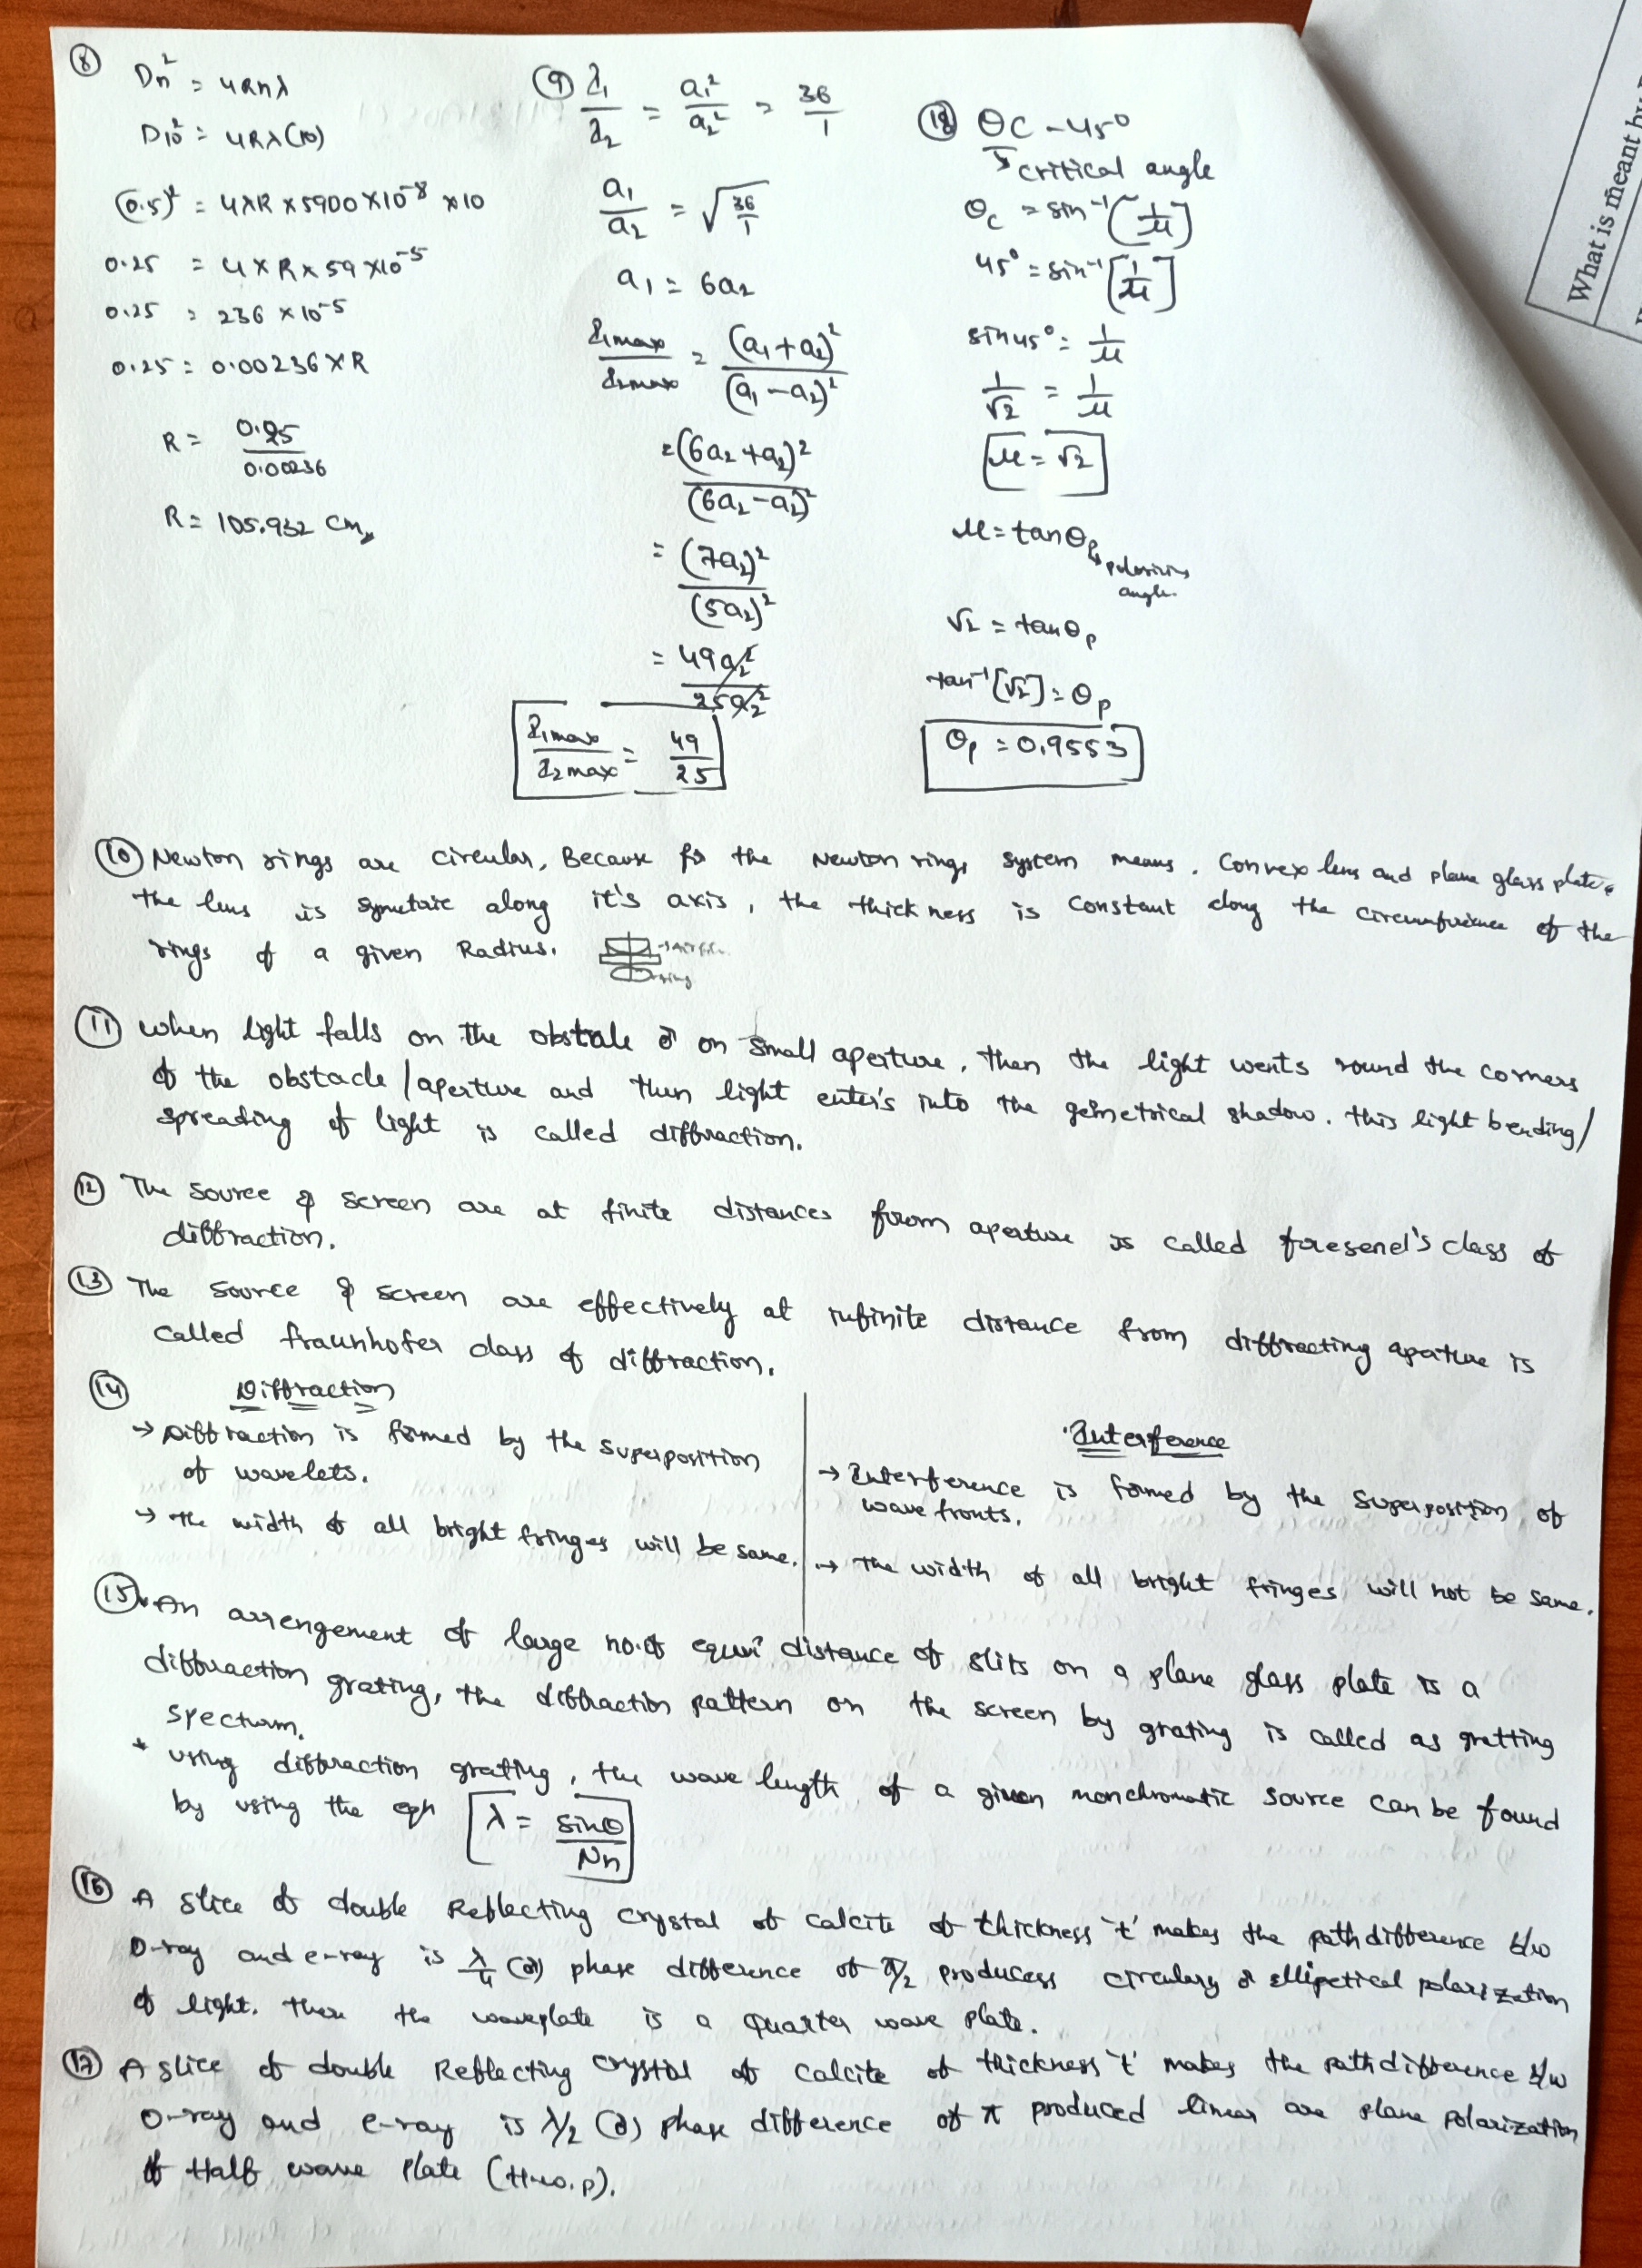 ⑧ Dn² = 4Rnλ
D10² = 4Rλ(10)
(0.5)² = 4λR x 5900 x 10⁻⁸ x 10
0.25 = 4 x R x 59 x10⁻⁵
0.25 = 236 x 10⁻⁵
0.25 = 0.00236 x R
R = 0.25 / 0.00236
R = 105.932 cm
⑨ I₁/I₂ = a₁²/a₂² = 36/1
a₁/a₂ = √36/1
a₁ = 6a₂
I₁max/I₂max = (a₁+a₂)²/(a₁-a₂)²
= (6a₂+a₂)²/(6a₂-a₂)²
= (7a₂)²/(5a₂)²
= 49a₂²/25a₂²
I₁max/I₂max = 49/25
⑱ θC - 45°
critical angle
θc = sin⁻¹(1/μ]
45° = sin⁻¹[1/μ]
sin45° = 1/μ
1/√2 = 1/μ
μ = √2
μ = tanθp
polarizing
angle.
√2 = tanθp
tan⁻¹[√2] = θp
θp = 0.9553
⑩ Newton rings are circular, Because for the Newton rings system means, Convex lens and plane glass plate.
the lens is symetric along it's axis, the thickness is constant along the circumference of the
rings of a given Radius.
ring
⑪ when light falls on the obstale or on small aperture, then the light wents round the corners
of the obstacle / aperture and then light enter's into the geometrical shadow. this light bending/
spreading of light is called diffraction.
⑫ The source & screen are at finite distances from aperture is called foresenel's class of
diffraction.
⑬ The source & screen are effectively at infinite distance from diffracting aparture is
called fraunhofer class of diffraction.
⑭ Diffraction
→ Diffraction is formed by the superposition
of wavelets.
→ The width of all bright fringes will be same.
Interference
→ Interference is formed by the superposition of
wave fronts.
→ The width of all bright fringes will not be same.
⑮ An arrengement of large no.of equi distance of slits on a plane glass plate is a
diffraction grating, the diffraction pattern on the screen by grating is called as gratting
specturm.
* using diffraction grating, the wave length of a given monchromatic source can be found
by using the eqn λ = sinθ/Nn
⑯ A slice of double Reflecting crystal of calcite of thickness 't' makes the path difference b/w
O-ray and e-ray is λ/4 (or) phase difference of π/2 producess circulary or ellipetical polarization
of light. then the waveplate is a Quarter wave plate.
⑰ A slice of double Reflecting crystal of calcite of thickness 't' makes the path difference b/w
O-ray and e-ray is λ/2 (or) phase difference of π produced linear are plane polarization
of Half wave plate (H.w.p).
What is meant by